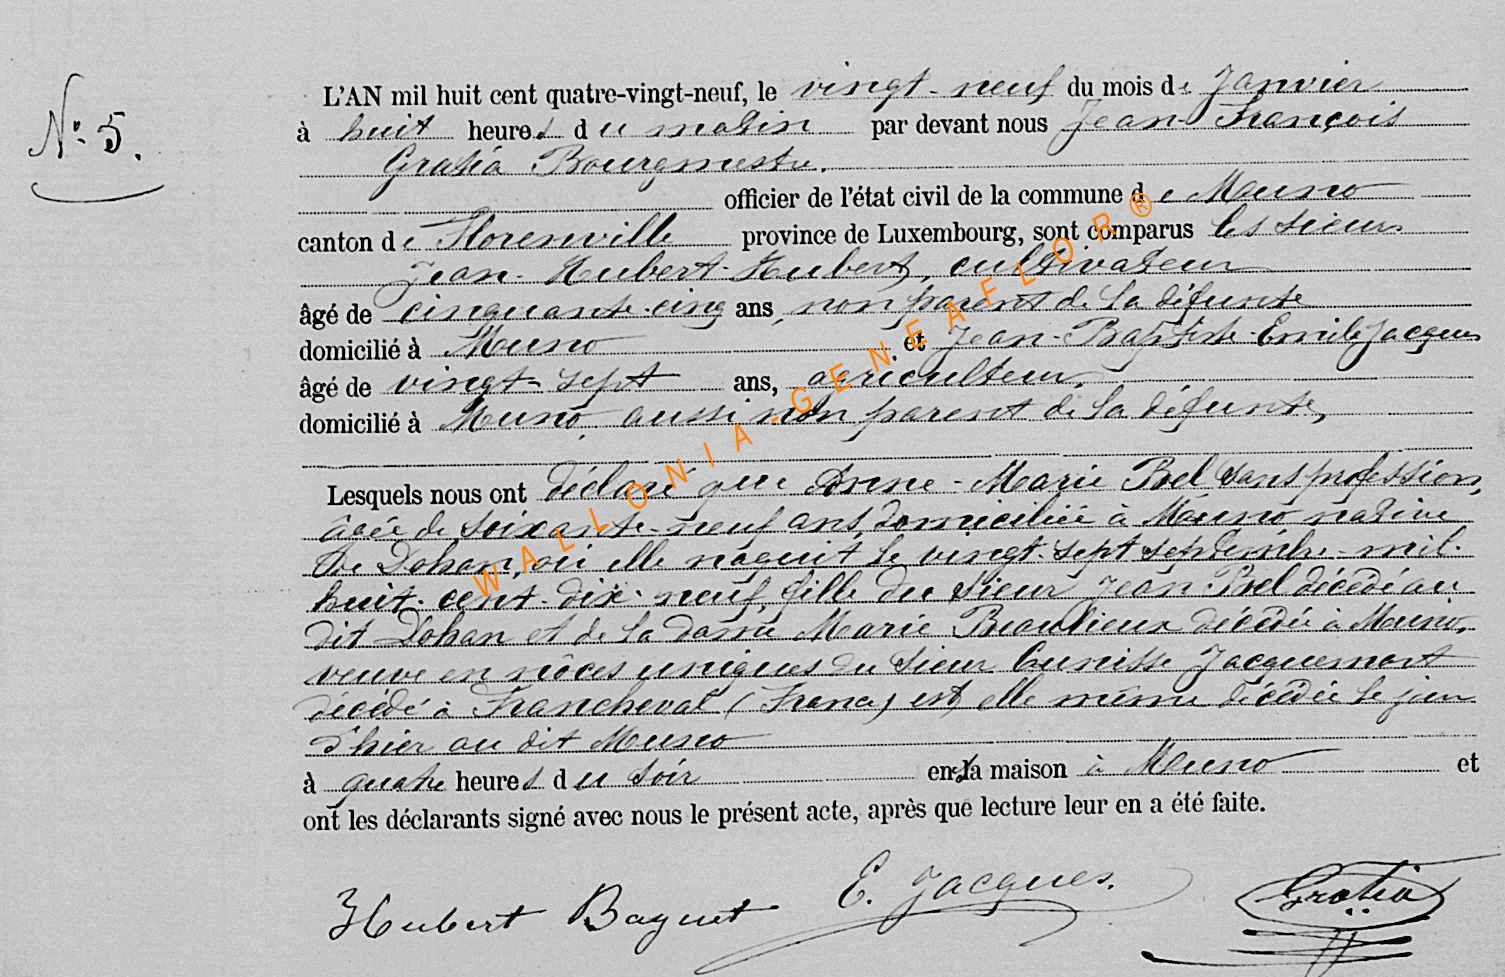 N° 5.
L'AN mil huit cent quatre-vingt-neuf, le vingt-neuf du mois de Janvier
à huit heures du matin par devant nous Jean-François
Gratia Bourgmestre.
officier de l'état civil de la commune de Muno
canton de Florenville province de Luxembourg, sont comparus les sieurs
Jean-Hubert-Hubert, cultivateur
âgé de cinquante-cinq ans, non parent de la défunte
domicilié à Muno et Jean-Baptiste-Emile Jacques
âgé de vingt-sept ans, agriculteur,
domicilié à Muno, aussi non parent de la défunte,
Lesquels nous ont déclaré que Anne-Marie Bel sans profession,
âgée de soixante-neuf ans, domiciliée à Muno, native
de Dohan, où elle naquit le vingt-sept septembre mil-
huit-cent-dix-neuf, fille du sieur Jean Bel décédé au
dit Dohan et de la dame Marie Beaulieux décédée à Muno,
veuve en nôces uniques du sieur Jacquemart
décédé à Francheval (France) est elle même décédée le jour
d'hier au dit Muno
à quatre heures du soir en la maison à Muno et
ont les déclarants signé avec nous le présent acte, après que lecture leur en a été faite.
Hubert Baquet E. Jacques. Gratia
WALLONIA-GENEAFLOR®